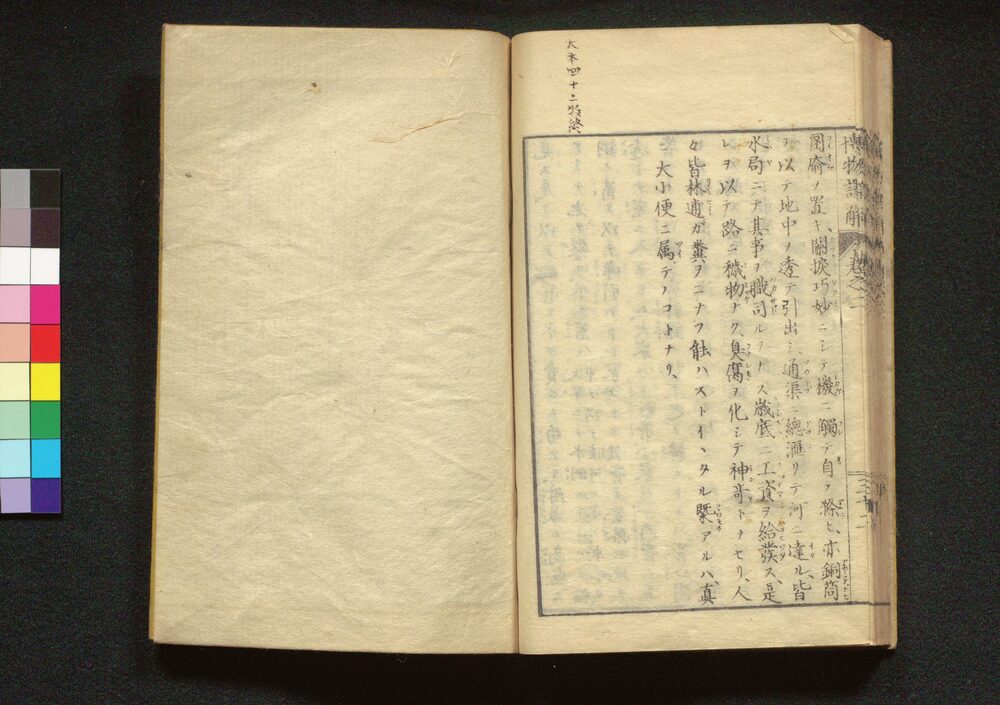 博物語解 巻之二
圊窬ノ置キ、關捩巧妙ニシテ機ニ觸テ自ラ滌ヒ、亦銅筒
ヲ以テ地中ヲ透テ引出シ、通渠ニ總滙リテ河ニ達ル、皆
水局ニテ其事ヲ職司ルヲナス歳底ニ工資ヲ給發ス、是
レヲ以テ路ニ穢物ナク、臭腐ヲ化シテ神奇トナセリ、人
々皆林逋ガ糞ヲニナフ能ハストイヽタル
アルハ、真
大小便ニ属テノコトナリ、
大本四十二枚終